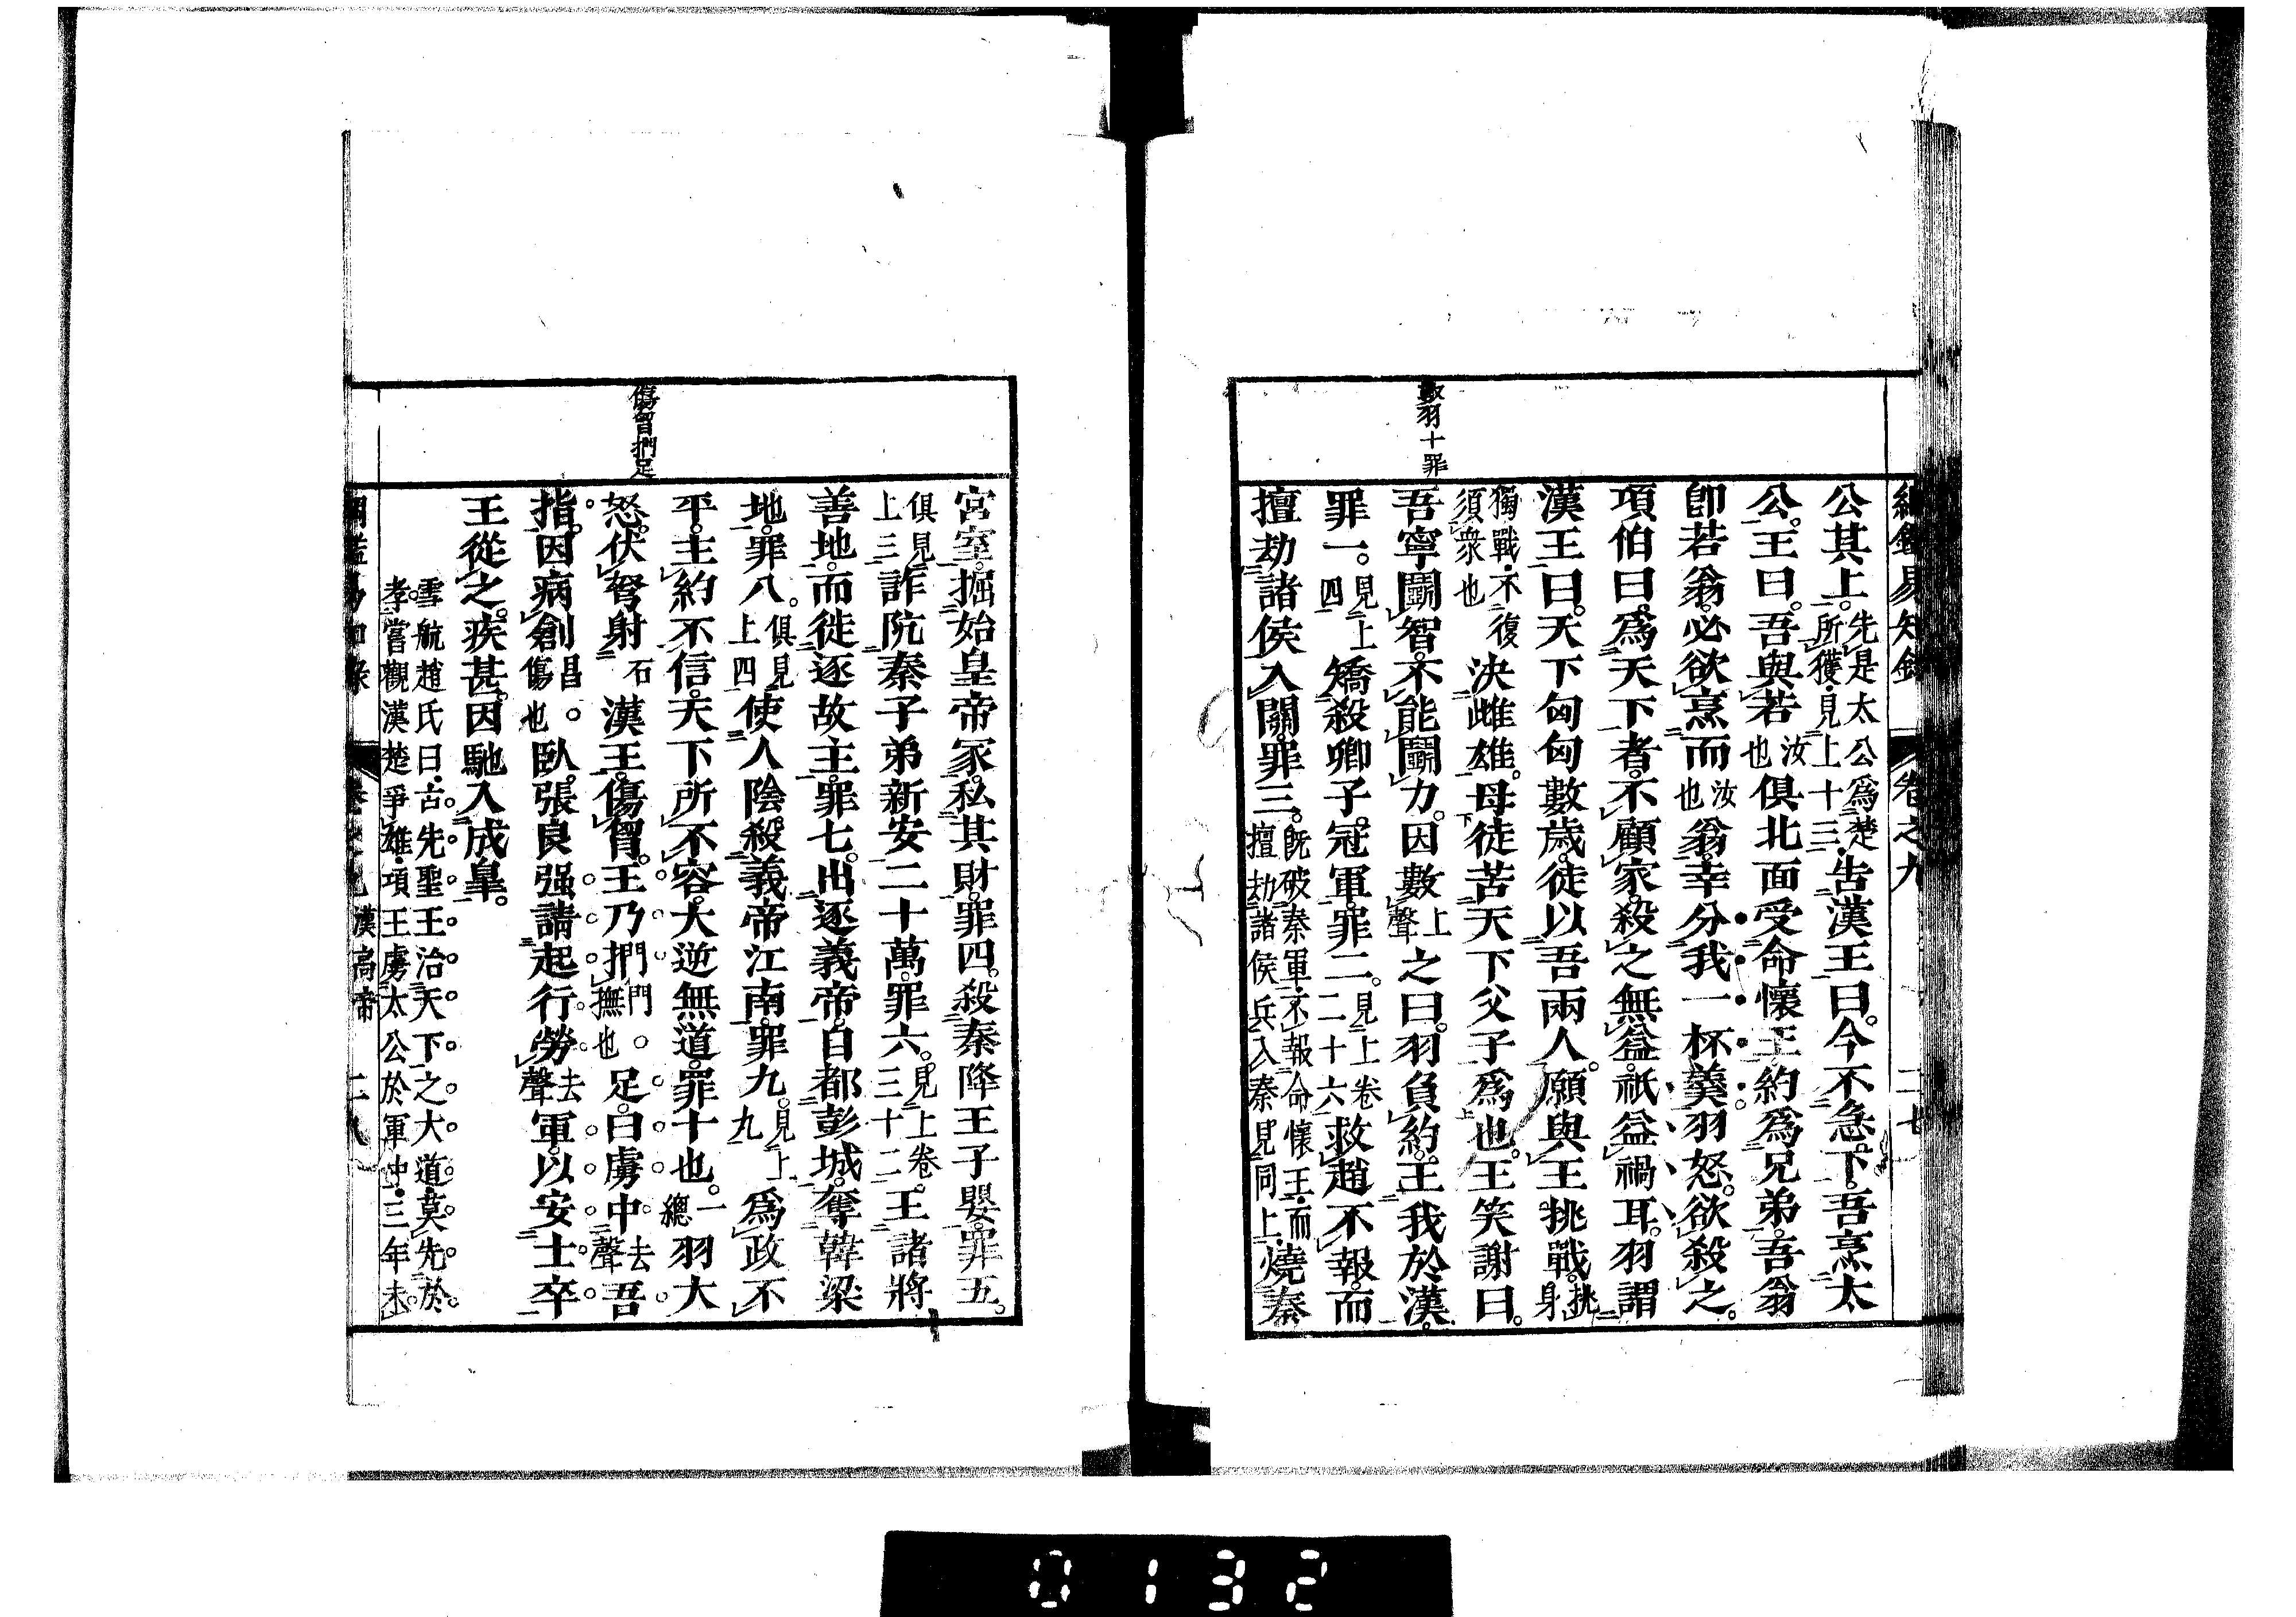 綱鑑易知錄 卷之九 二十七
數羽十罪
公其上。先是太公爲楚所獲見上十三。告漢王曰。今不急下。吾烹太
公。王曰。吾與若汝也俱北面受命懷王。約爲兄弟。吾翁
卽若翁。必欲烹而汝也翁。幸分我一杯羹。羽怒。欲殺之。
項伯曰。爲天下者。不顧家。殺之無益。祇益禍耳。羽謂
漢王曰。天下匈匈數歲。徒以吾兩人。願與王挑戰。挑身
獨戰不復須衆也決雌雄。毋徒苦天下父子爲也。王笑謝曰。
吾寧鬭智。不能鬭力。因數上聲之曰。羽負約。王我於漢。
罪一。見上四矯殺卿子冠軍。罪二。見上卷二十六救趙不報。而
擅劫諸侯入關。罪三。旣破秦軍不報命懷王而擅劫諸侯兵入秦見同上燒秦
宮室。掘始皇帝冢。私其財。罪四。殺秦降王子嬰。罪五。
俱見上三詐阬秦子弟新安二十萬。罪六。見上卷三十二王諸將
善地。而徙逐故主。罪七。出逐義帝。自都彭城。奪韓梁
地。罪八。俱見上四使人陰殺義帝江南。罪九。見上九爲政不
平。主約不信。天下所不容。大逆無道。罪十也。一總羽大
怒。伏弩射石漢王。傷胷。王乃捫門。撫也足。曰虜中去聲吾
指。因病創昌。傷也臥。張良强請起行勞去聲軍。以安士卒。
王從之。疾甚。因馳入成皐。
雪航趙氏曰。古先聖王治天下之大道。莫先於
孝。嘗觀漢楚爭雄。項王虜太公於軍中。三年未
傷胷捫足
綱鑑易知錄 卷之九 漢高帝 二十八
0132